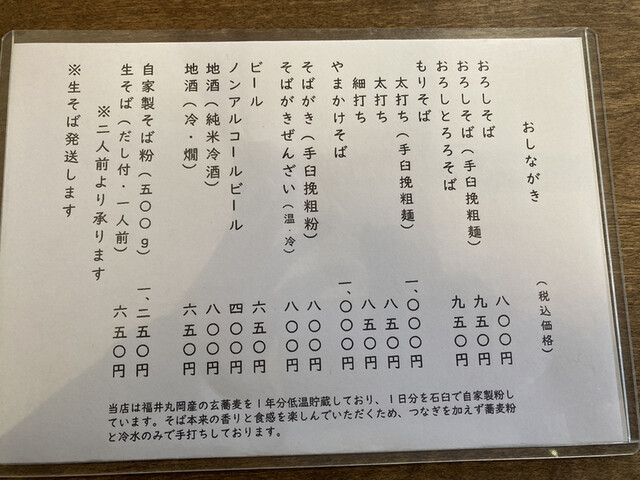 おしながき （税込価格）
おろしそば 八〇〇円
おろしそば（手臼挽粗麺） 九五〇円
おろしとろろそば 九五〇円
もりそば
太打ち（手臼挽粗麺） 一、〇〇〇円
太打ち 八五〇円
細打ち 八五〇円
やまかけそば 一、〇〇〇円
そばがき（手臼挽粗粉） 八〇〇円
そばがきぜんざい（温・冷） 八〇〇円
ビール 六五〇円
ノンアルコールビール 四〇〇円
地酒（純米冷酒） 八〇〇円
地酒（冷・燗） 六五〇円
自家製そば粉（五〇〇g） 一、二五〇円
生そば（だし付・一人前） 六五〇円
※二人前より承ります
※生そば発送します
当店は福井丸岡産の玄蕎麦を1年分低温貯蔵しており、1日分を石臼で自家製粉し
ています。そば本来の香りと食感を楽しんでいただくため、つなぎを加えず蕎麦粉
と冷水のみで手打ちしております。